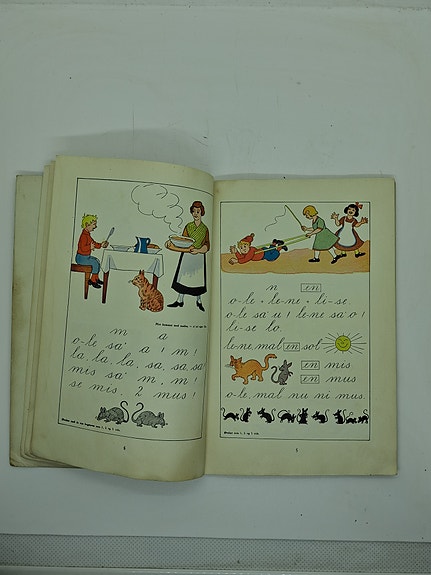 m a
o-le sa' a ! m !
la, la, la, sa, sa, sa!
mis sa' m, m !
se mis, 2 mus !
4
n en
o-le + le-ne + li-se.
o-le sa' u ! le-ne sa' o !
li-se lo.
le-ne, mal en sol
en mis
en mus
o-le, mal nu ni mus.
5